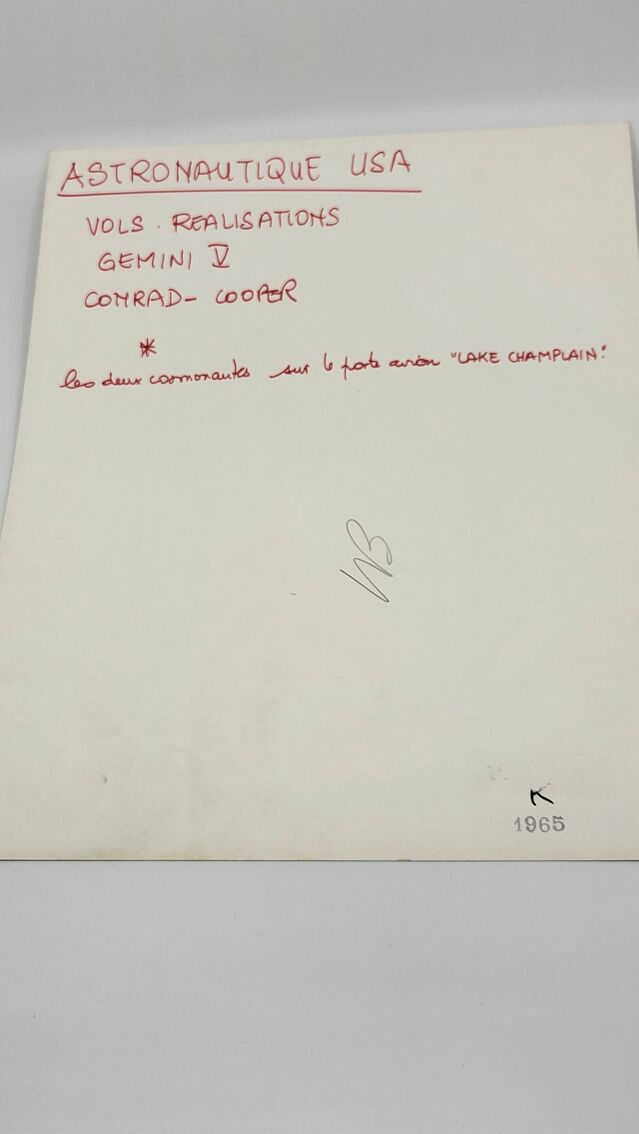 ASTRONAUTIQUE USA
VOLS. REALISATIONS
GEMINI V
CONRAD - COOPER
*
les deux cosmonautes sur le porte avion "LAKE CHAMPLAIN".
K
1965